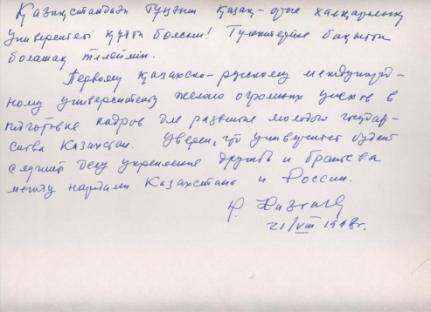 Қазақстандағы тұңғыш қазақ-орыс халықаралық
университеті құтты болсын! Түлектеріне бақытты
болашақ тілеймін.
Первому Казахско-русскому международ-
ному университету желаю огромных успехов в
подготовке кадров для развития молодого государ-
ства Казахстан. Уверен, что университет будет
служить делу укрепления дружбы и братства
между народами Казахстана и России.
21/VIII 1998г.